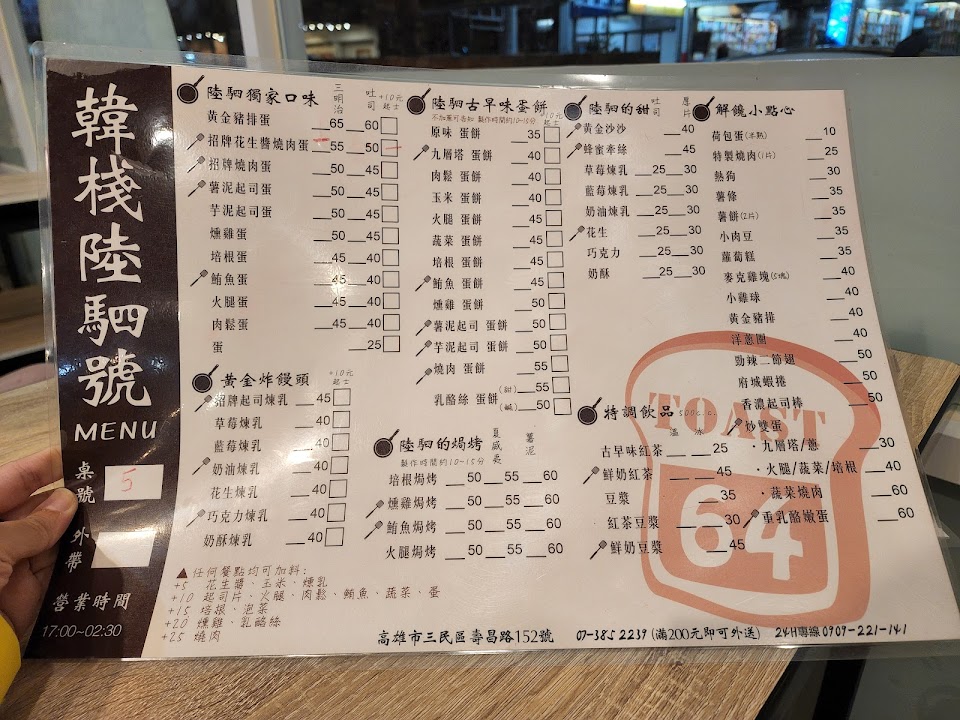 韓棧陸駟號
MENU
桌號 5
外帶
營業時間
17:00~02:30
陸駟獨家口味 三明治 吐司 +10元起士
黃金豬排蛋 65 60
招牌花生醬燒肉蛋 55 50
招牌燒肉蛋 50 45
薯泥起司蛋 50 45
芋泥起司蛋 50 45
燻雞蛋 50 45
培根蛋 45 40
鮪魚蛋 45 40
火腿蛋 45 40
肉鬆蛋 45 40
蛋 25
黃金炸饅頭 +10元起士
招牌起司煉乳 45
草莓煉乳 40
藍莓煉乳 40
奶油煉乳 40
花生煉乳 40
巧克力煉乳 40
奶酥煉乳 40
▲任何餐點均可加料:
+5 花生醬、玉米、煉乳
+10 起司片、火腿、肉鬆、鮪魚、蔬菜、蛋
+15 培根、泡菜
+20 燻雞、乳酪絲
+25 燒肉
陸駟古早味蛋餅 +10元起士
不加蔥可告知 製作時間約10-15分
原味 蛋餅 35
九層塔 蛋餅 40
肉鬆 蛋餅 40
玉米 蛋餅 40
火腿 蛋餅 40
蔬菜 蛋餅 45
培根 蛋餅 45
鮪魚 蛋餅 45
燻雞 蛋餅 50
薯泥起司 蛋餅 50
芋泥起司 蛋餅 50
燒肉 蛋餅 55
乳酪絲 蛋餅 (甜) 55
(鹹) 50
陸駟的焗烤 夏威夷 薯泥
製作時間約10-15分
培根焗烤 50 55 60
燻雞焗烤 50 55 60
鮪魚焗烤 50 55 60
火腿焗烤 50 55 60
陸駟的甜 吐司 厚片
黃金沙沙 40
蜂蜜牽絲 45
草莓煉乳 25 30
藍莓煉乳 25 30
奶油煉乳 25 30
花生 25 30
巧克力 25 30
奶酥 25 30
解饞小點心
荷包蛋(半熟) 10
特製燒肉(1片) 25
熱狗 30
薯條 35
薯餅(2片) 35
小肉豆 35
蘿蔔糕 35
麥克雞塊(5塊) 40
小雞球 40
黃金豬排 40
洋蔥圈 40
勁辣二節翅 50
府城蝦捲 50
香濃起司棒 50
炒雙蛋
・九層塔/蔥 30
・火腿/蔬菜/培根 40
・蔬菜燒肉 60
重乳酪嫩蛋 60
特調飲品 500c.c. 溫 冰
古早味紅茶 25
鮮奶紅茶
豆漿 35
紅茶豆漿 30
鮮奶豆漿 45
TOAST
64
高雄市三民區壽昌路152號 07-385 2239 (滿200元即可外送) 24H專線0909-221-141